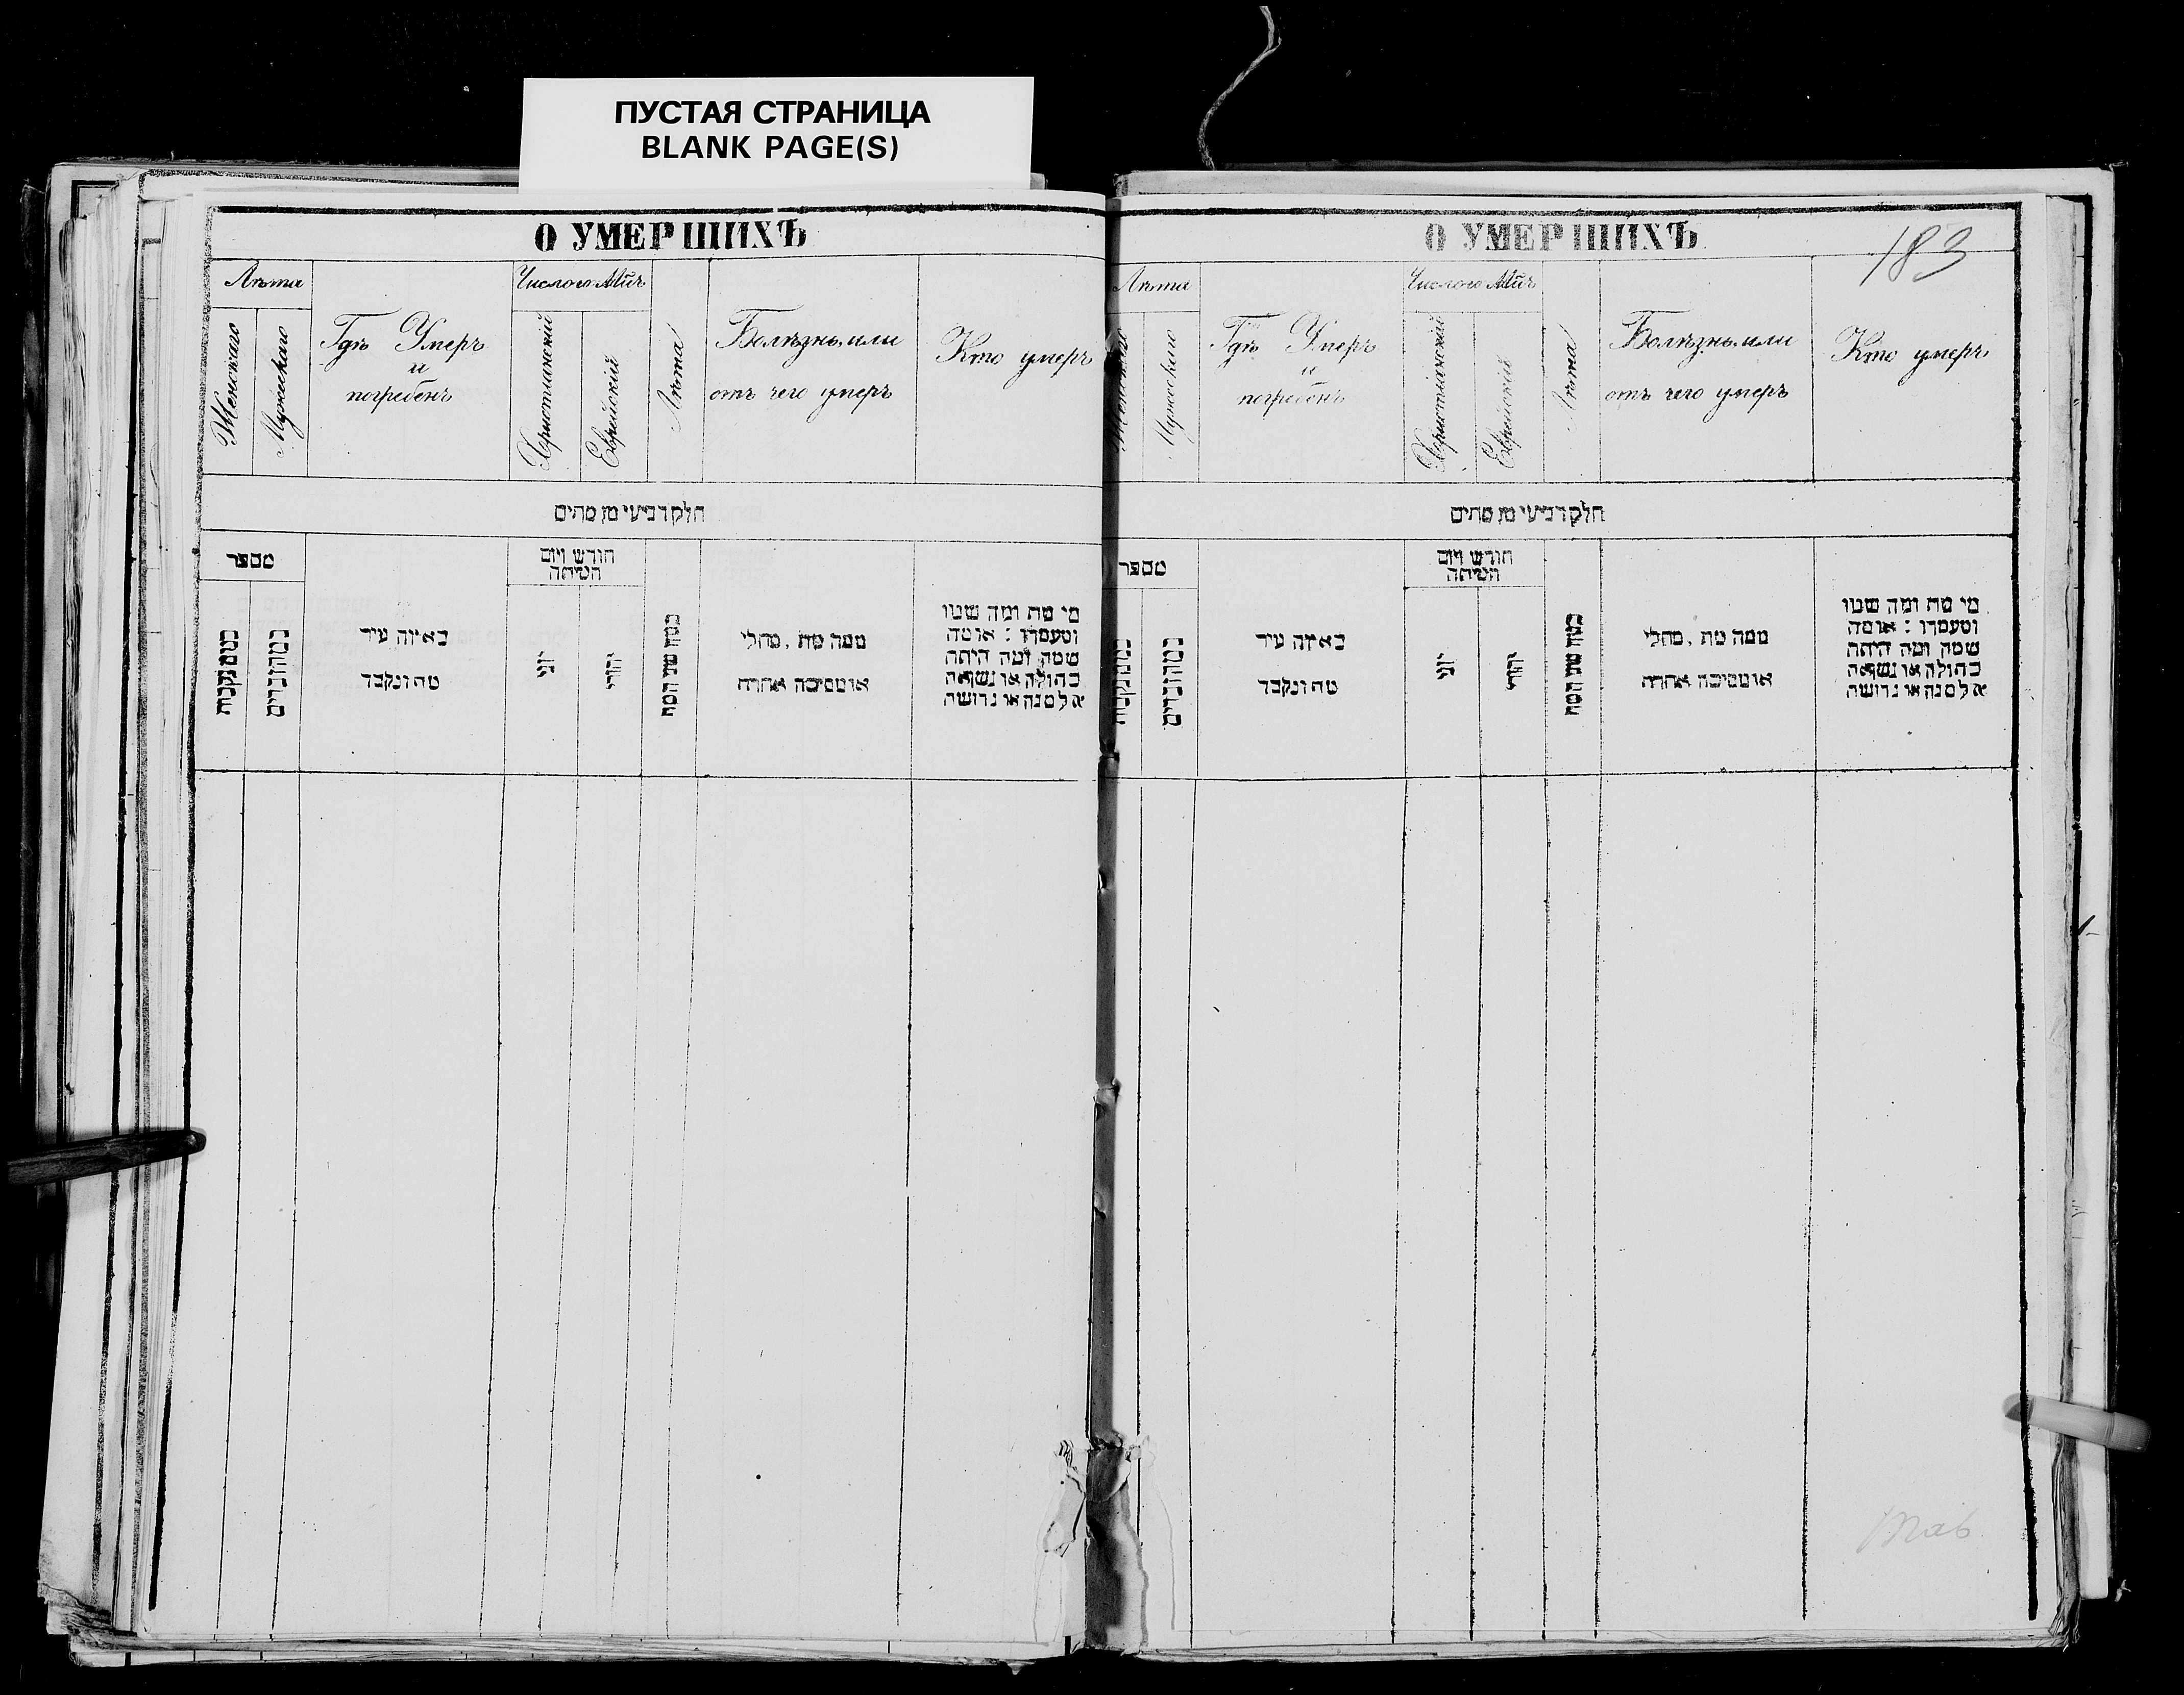 ПУСТАЯ СТРАНИЦА
BLANK PAGE(S)
О УМЕРШИХЪ
Лѣта
Женскаго
Мужескаго
Гдѣ Умеръ
и
погребенъ
Число и Мц̃ъ
Христіянскій
Еврейскій
Лѣта
Болѣзнь или
отъ чего умеръ
Кто умеръ
חלק רביעי מן מתים
מספר
כמה נקבות
כמה זכרים
באיזה עיר
מת ונקבר
חודש ויום
המיתה
יוני
יהודי
כמה שנות המת
ממה מת, מחלי
או מסיבה אחרת
מי מת ומה שמו
ומעמדו : או מה
שמה ומה היתה
בתולה או נשואה
אלמנה או גרושה
О УМЕРШИХЪ
183
Лѣта
Женскаго
Мужескаго
Гдѣ Умеръ
и
погребенъ
Число и Мц̃ъ
Христіянскій
Еврейскій
Лѣта
Болѣзнь или
отъ чего умеръ
Кто умеръ
חלק רביעי מן מתים
מספר
כמה נקבות
כמה זכרים
באיזה עיר
מת ונקבר
חודש ויום
המיתה
יוני
יהודי
כמה שנות המת
ממה מת, מחלי
או מסיבה אחרת
מי מת ומה שמו
ומעמדו : או מה
שמה ומה היתה
בתולה או נשואה
אלמנה או גרושה